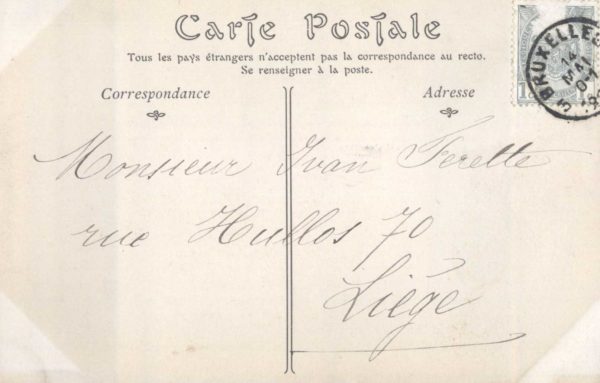 Carte Postale
Tous les pays étrangers n'acceptent pas la correspondance au recto.
Se renseigner à la poste.
Correspondance
Adresse
BRUXELLES
3
14
MAI
07
Monsieur Ivan Ferette
rue Hullos 70
Liége